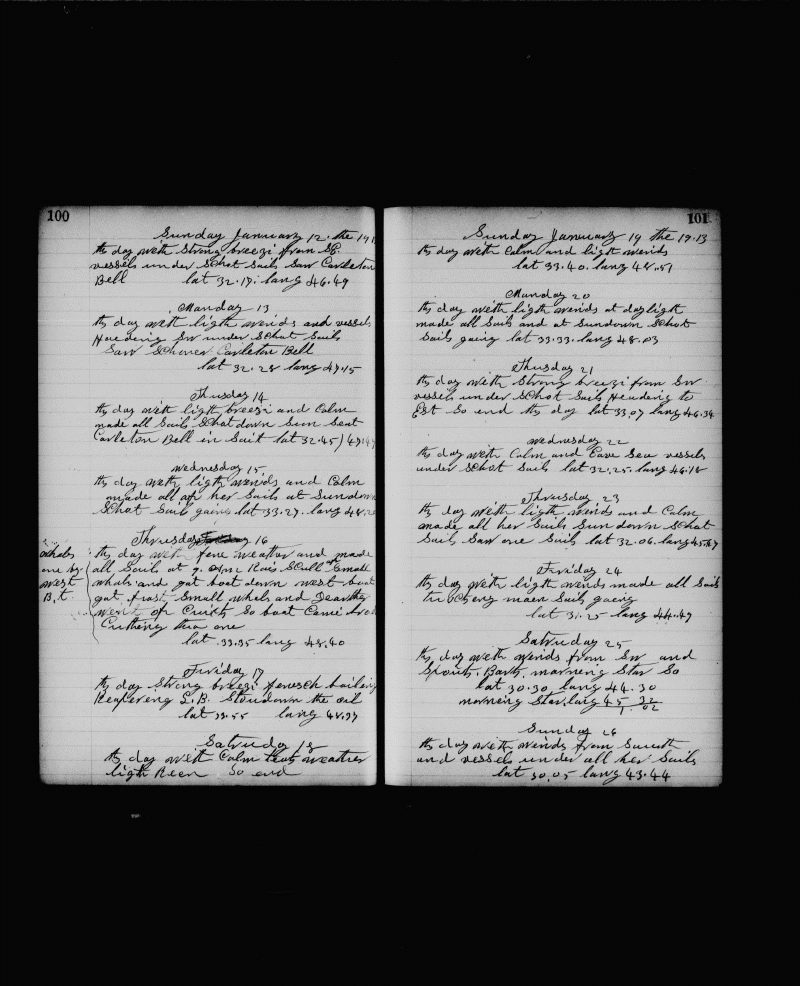 100
Sunday January 12. the 191
th day with Strong breezi from SE.
vessels under Schot Sails Saw Carleton
Bell lat 32.19. lang 46.49
Manday 13
th day weth ligth weinds and vessels
Headeing Sw under Schot Sails
Saw Schoner Carleton Bell
lat 32.28 lang 47.15
Thusday 14
th day with ligth breezi and Calm
made all Sails Schat down Sun Seat
Carleton Bell in Sait lat 32.45
wednesday 15.
th day weth ligth weinds and Calm
made all of her Sails at Sundown
Schat Sail gaing lat 33.27. lang 48.
Thrusday 16
th day weth fene weather and made
all Sails at 9. Rais Small
whals and gat boat down west boat
gat frast Small whals and
went of so boat Came
Cutheng tha one
lat .33.35 lang 48.40
whals
one by
west
B,t
Friday 17
th day Strong breezi boileing
S.B. Stoudown the oil
lat 33.55 lang 48.39
Satruday 18
th day weth Calm weather
ligth So end
101
Sunday January 19 the 19.13
th day weth Calm and ligth weinds
lat 33.40. lang 48.51
Manday 20
th day weth ligth weinds at dayligth
made all Sails and at Sundown Schot
Sails gaing lat 33.33. lang 48.03
Thusday 21
th day weth Strong breezi from Sw
vessels under Schot Sails Headeing to
Est So end th day lat 33.07 lang 46.34
wednesday 22
th day weth Calm and Sea vessels
under Schot Sails lat 32.25. lang 46.18
Thrusday 23
th day weth ligth weinds and Calm
made all her Sails Sun down Schat
Sails Saw one Sails lat 32.06. lang 45.
Friday 24
th day weth ligth weinds made all Sails
maen Sails gaeing
lat 31.25 lang 44.49
Satruday 25
th day weth weinds from Sw and
Spouts. Bark. morneing Star So
lat 30.30 lang 44.30
morneing Star. lang 45 32
1. 02
Sunday 26
th day weth weinds from Saucth
and vessels under all her Sails
lat 30.05 lang 43.44